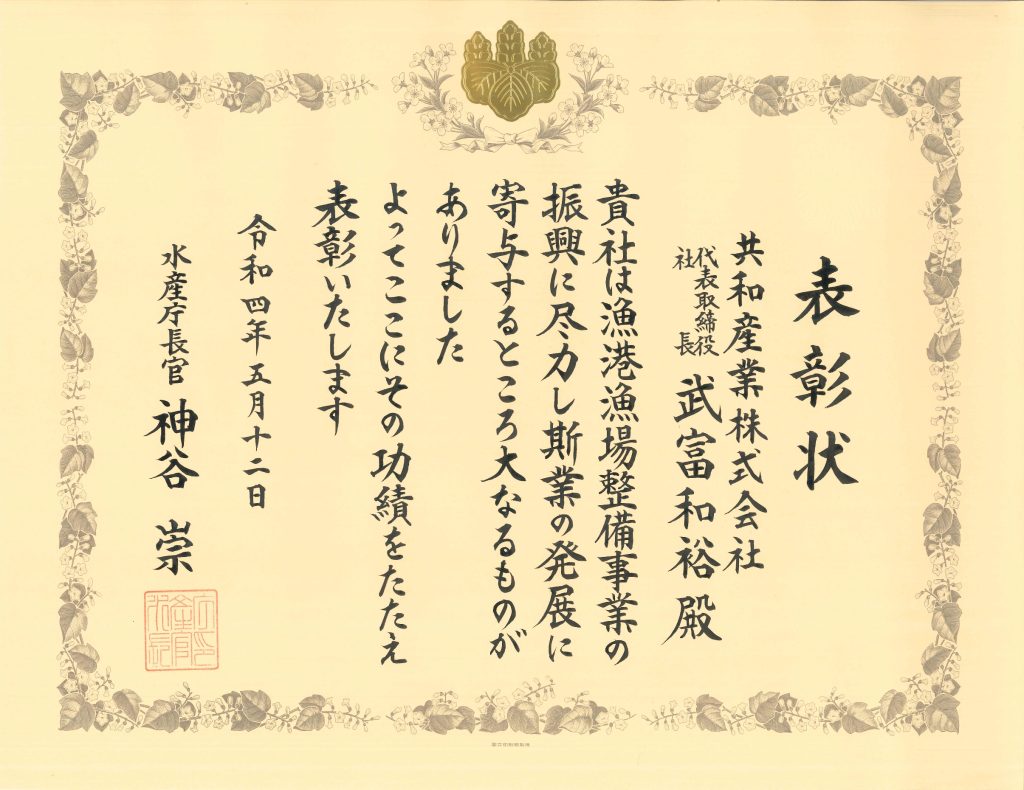 表彰状
共和産業株式会社
代表取締役
社長
武富和裕殿
貴社は漁港漁場整備事業の
振興に尽力し斯業の発展に
寄与するところ大なるものが
ありました
よってここにその功績をたたえ
表彰いたします
令和四年五月十二日
水産庁長官 神谷 崇